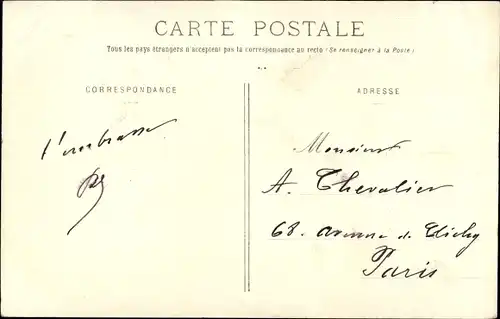 CARTE POSTALE
Tous les pays étrangers n'acceptent pas la correspondance au recto (Se renseigner à la Poste)
CORRESPONDANCE
t'embrasse
ADRESSE
Monsieur
A. Chevalier
68. avenue de Clichy
Paris